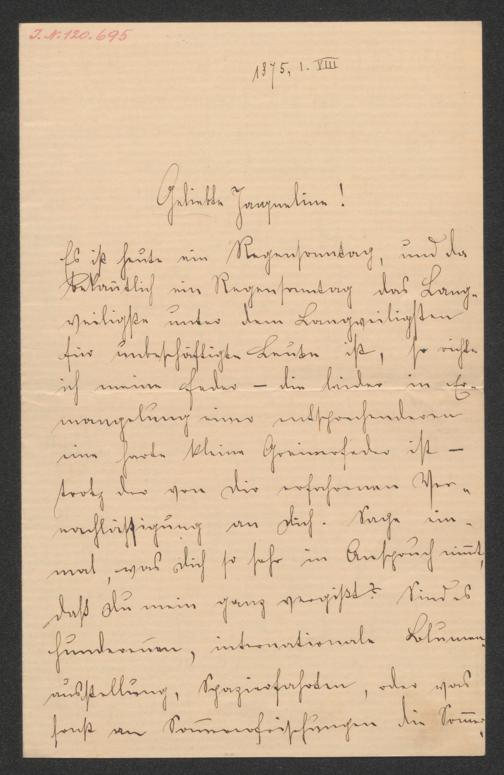 I. N. 120.695
1875, 1. VIII
Geliebte Jaqueline!
Es ist heute ein Regensonntag, und da
bekañtlich ein Regensonntag das Lang-
weiligste unter dem Langweiligsten
für unbeschäftigte Leute ist, so richte
ich meine Feder – die leider in Er-
mangelung einer entsprechenderen
eine harte kleine Greinerfeder ist –
trotz der von Dir erfahrenen Ver-
nachläßigung an Dich. Sage ein-
mal, was Dich so sehr in Anspruch nim̃t,
daß Du mein ganz vergißt? Sind es
Hunderennen, internationale Blumen-
ausstellung, Spazierfahrten, oder was
sonst an Som̃erfrischungen die Som̃er-